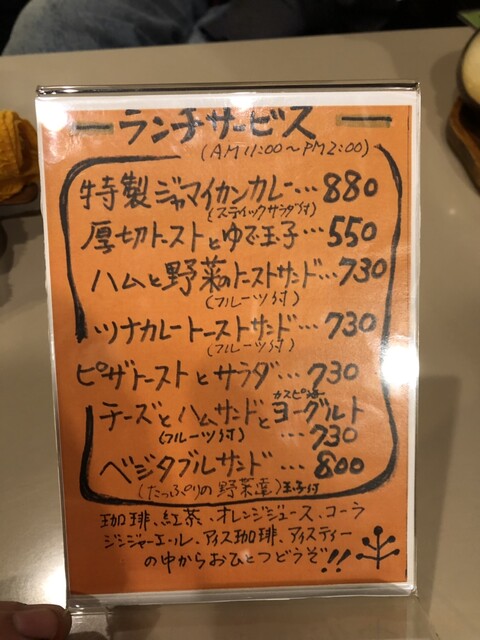 ランチサービス
(AM11:00〜PM2:00)
特製ジャマイカンカレー…880
(スティックサラダ付)
厚切トーストとゆで玉子…550
ハムと野菜のトーストサンド…730
(フルーツ付)
ツナカレートーストサンド…730
(フルーツ付)
ピザトーストとサラダ…730
カスピ海
チーズとハムサンドとヨーグルト
(フルーツ付) …730
ベジタブルサンド…800
(たっぷりの野菜・玉子付)
珈琲、紅茶、オレンジジュース、コーラ
ジンジャーエール、アイス珈琲、アイスティー
の中からおひとつどうぞ!!